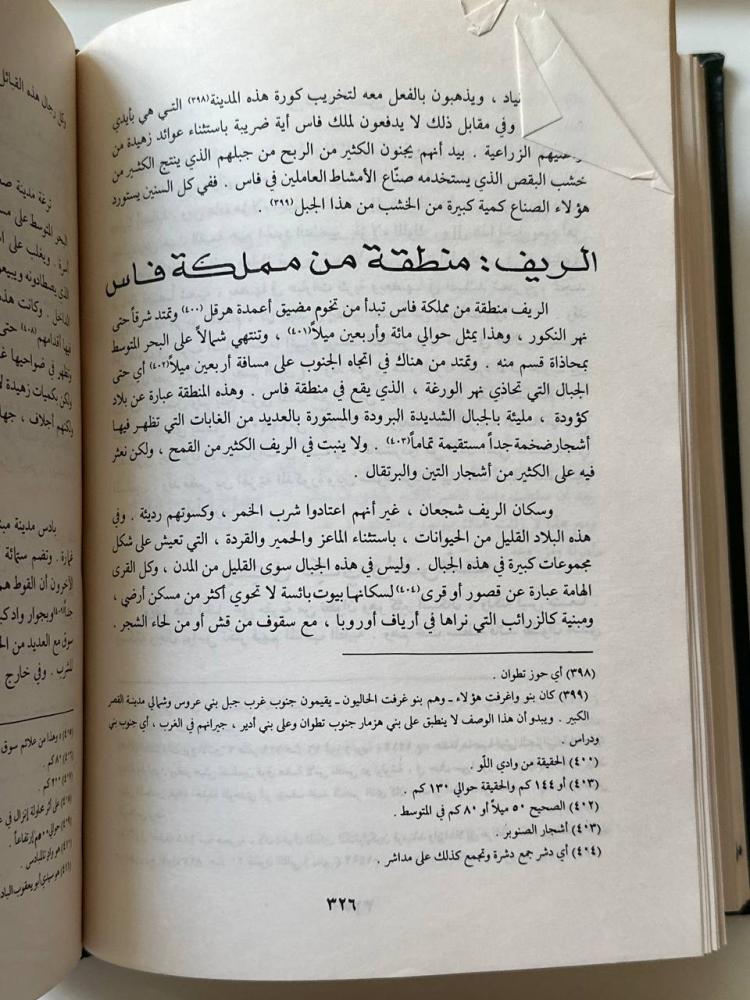 نياد ، ويذهبون بالفعل معه لتخريب كورة هذه المدينة(٣٩٨) التي هي بأيدي
وفي مقابل ذلك لا يدفعون لملك فاس أية ضريبة باستثناء عوائد زهيدة من
الزراعية . بيد أنهم يجنون الكثير من الربح من جبلهم الذي ينتج الكثير من
خشب البقص الذي يستخدمه صنّاع الأمشاط العاملين في فاس . ففي كل السنين يستورد
هؤلاء الصناع كمية كبيرة من الخشب من هذا الجبل(٣٩٩) .
الريف : منطقة من مملكة فاس
الريف منطقة من مملكة فاس تبدأ من تخوم مضيق أعمدة هرقل(٤٠٠) وتمتد شرقاً حتى
نهر النكور ، وهذا يمثل حوالي مائة وأربعين ميلاً(٤٠١) ، وتنتهي شمالاً على البحر المتوسط
بمحاذاة قسم منه . وتمتد من هناك في اتجاه الجنوب على مسافة أربعين ميلاً(٤٠٢) أي حتى
الجبال التي تحاذي نهر الورغة ، الذي يقع في منطقة فاس . وهذه المنطقة عبارة عن بلاد
كؤودة ، مليئة بالجبال الشديدة البرودة والمستورة بالعديد من الغابات التي تظهر فيها
أشجار ضخمة جداً مستقيمة تماماً(٤٠٣) . ولا ينبت في الريف الكثير من القمح ، ولكن نعثر
فيه على الكثير من أشجار التين والبرتقال .
وسكان الريف شجعان ، غير أنهم اعتادوا شرب الخمر ، وكسوتهم رديئة . وفي
هذه البلاد القليل من الحيوانات ، باستثناء الماعز والحمير والقردة ، التي تعيش على شكل
مجموعات كبيرة في هذه الجبال . وليس في هذه الجبال سوى القليل من المدن ، وكل القرى
الهامة عبارة عن قصور أو قرى(٤٠٤) لسكانها بيوت بائسة لا تحوي أكثر من مسكن أرضي ،
ومبنية كالزرائب التي نراها في أرياف أوروبا ، مع سقوف من قش أو من لحاء الشجر .
(٣٩٨) أي حوز تطوان .
(٣٩٩) كان بنو واغرفت هؤلاء ـ وهم بنو غرفت الحاليون ـ يقيمون جنوب غرب جبل بني عروس وشمالي مدينة القصر
الكبير . ويبدو أن هذا الوصف لا ينطبق على بني هزمار جنوب تطوان وعلى بني أدير ، جيرانهم في الغرب ، أي جنوب بني
ودراس .
(٤٠٠) الحقيقة من وادي اللّو .
(٤٠٣) أو ١٤٤ كم والحقيقة حوالي ١٣٠ كم .
(٤٠٢) الصحيح ٥٠ ميلاً أو ٨٠ كم في المتوسط .
(٤٠٣) أشجار الصنوبر .
(٤٠٤) أي دشر جمع دشرة وتجمع كذلك على مداشر .
٣٢٦